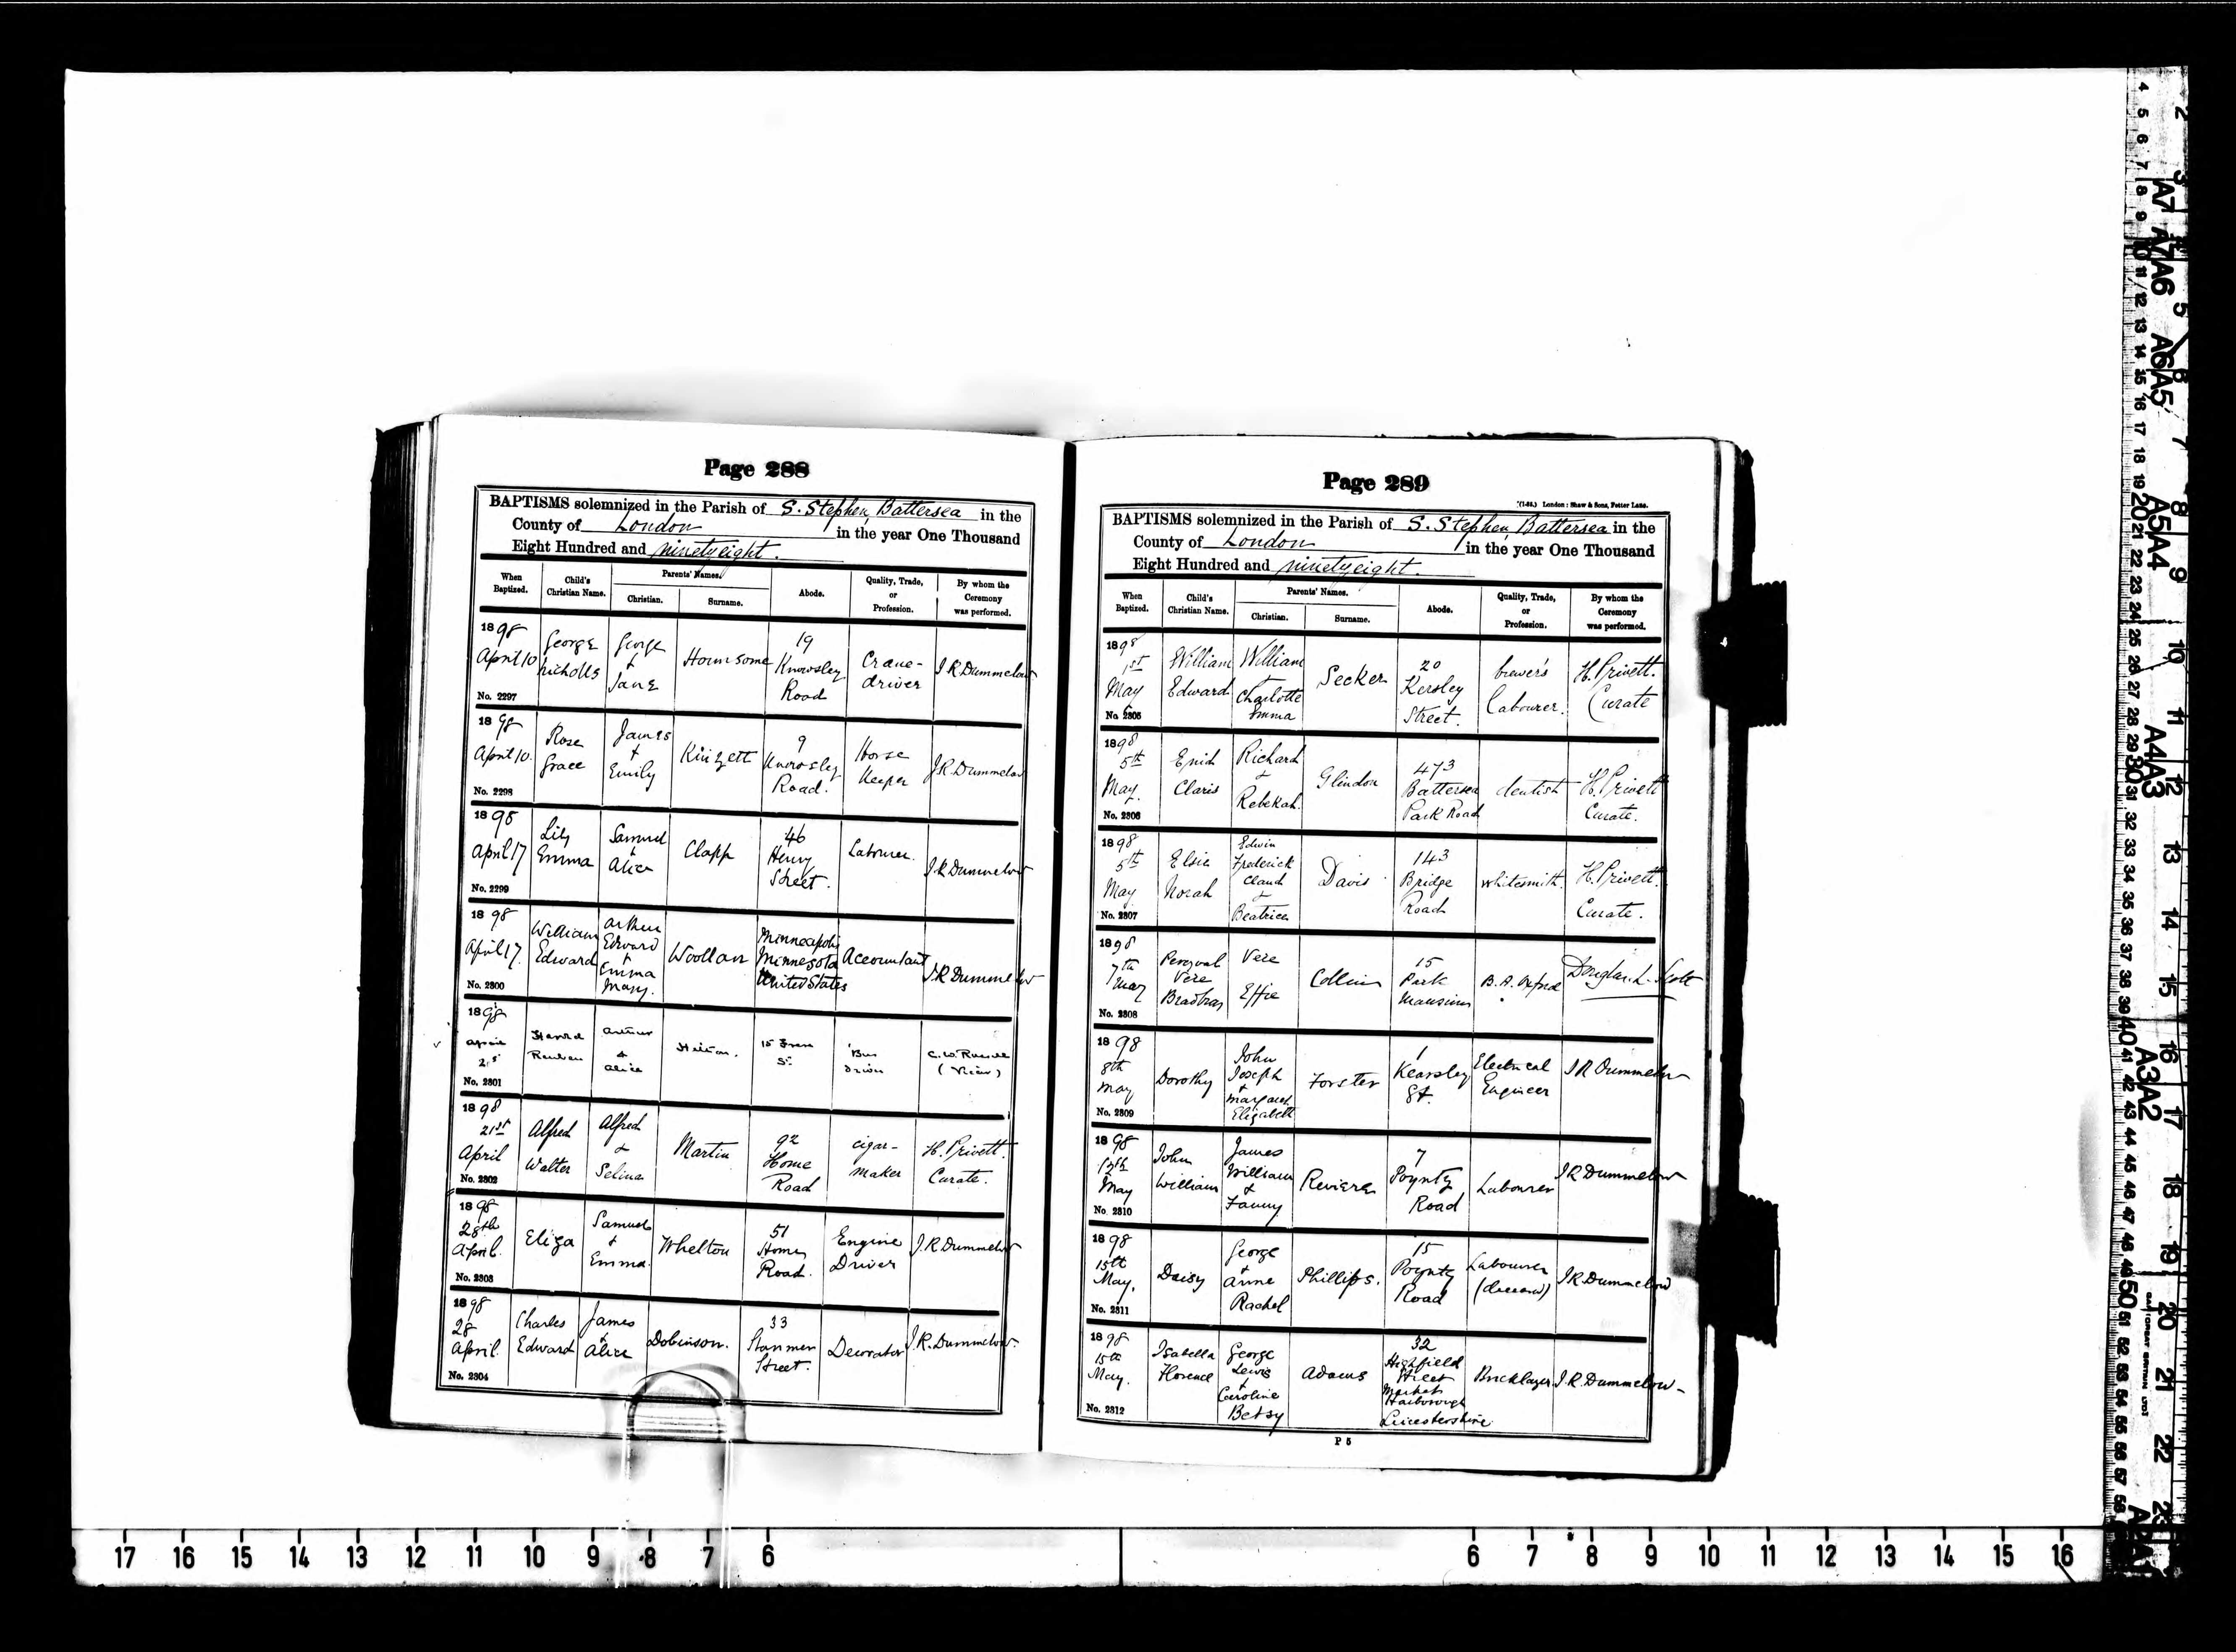 Page 288
BAPTISMS solemnized in the Parish of S. Stephen, Battersea in the
County of London in the year One Thousand
Eight Hundred and ninety eight.
When Baptized. Child's Christian Name. Parents' Names. Christian. Surname. Abode. Quality, Trade, or Profession. By whom the Ceremony was performed.
1898 April 10 No. 2297 George Nicholls George + Jane Hounsome 19 Knowsley Road Crane-driver J.R. Dummelow
1898 April 10. No. 2298 Rose Grace James + Emily Kinzett 9 Knowsley Road. Horse Keeper J.R. Dummelow
1898 April 17 No. 2299 Lily Emma Samuel + Alice Clapp 46 Henry Street. Labourer. J.R. Dummelow
1898 April 17. No. 2300 William Edward Arthur Edward + Emma Mary. Woollan Minneapolis Minnesota United States Accountant J.R. Dummelow
1898 April 21st No. 2301 Reuben Arthur + Alice 15 St. Bus Driver C.W. (Vicar)
1898 21st April No. 2302 Alfred Walter Alfred + Selina Martin 92 Home Road cigar-maker H. Privett. Curate.
1898 28th April. No. 2303 Eliza Samuel + Emma. Whelton 51 Home Road. Engine Driver J.R. Dummelow
1898 28 April. No. 2304 Charles Edward James + Alice Dobinson. 33 Stanmer Street. Decorator J.R. Dummelow.
Page 289
(1-95.) London: Shaw & Sons, Fetter Lane.
BAPTISMS solemnized in the Parish of S. Stephen, Battersea in the
County of London in the year One Thousand
Eight Hundred and ninety eight.
When Baptized. Child's Christian Name. Parents' Names. Christian. Surname. Abode. Quality, Trade, or Profession. By whom the Ceremony was performed.
1898 1st May No. 2305 William Edward William + Charlotte Emma Secker 20 Kersley Street. brewer's Labourer. H. Privett. Curate
1898 5th May. No. 2306 Enid Claris Richard + Rebekah. Glindon 473 Battersea Park Road dentist H. Privett Curate.
1898 5th May No. 2307 Elsie Norah Edwin Frederick Claud + Beatrice Davis 143 Bridge Road whitesmith. H. Privett. Curate.
1898 7th May No. 2308 Percival Vere Vere Effie Collins 15 Park Mansions B.A. Oxford Douglas L. Scott
1898 8th May No. 2309 Dorothy John Joseph + Margaret Elizabeth Forster 1 Kearsley St. Electrical Engineer J R Dummelow
1898 12th May No. 2310 John William James William + Fanny Reviere 7 Poynty Road Labourer J R Dummelow
1898 15th May. No. 2311 Daisy George + Anne Rachel Phillips. 15 Poynty Road Labourer (deceased) J R Dummelow
1898 15th May. No. 2312 Isabella Florence George Lewis + Caroline Betsy Adams 32 Highfield Street Market Harborough Leicestershire Bricklayer J.R. Dummelow
P 5
17 16 15 14 13 12 11 10 9 8 7 6
6 7 8 9 10 11 12 13 14 15 16